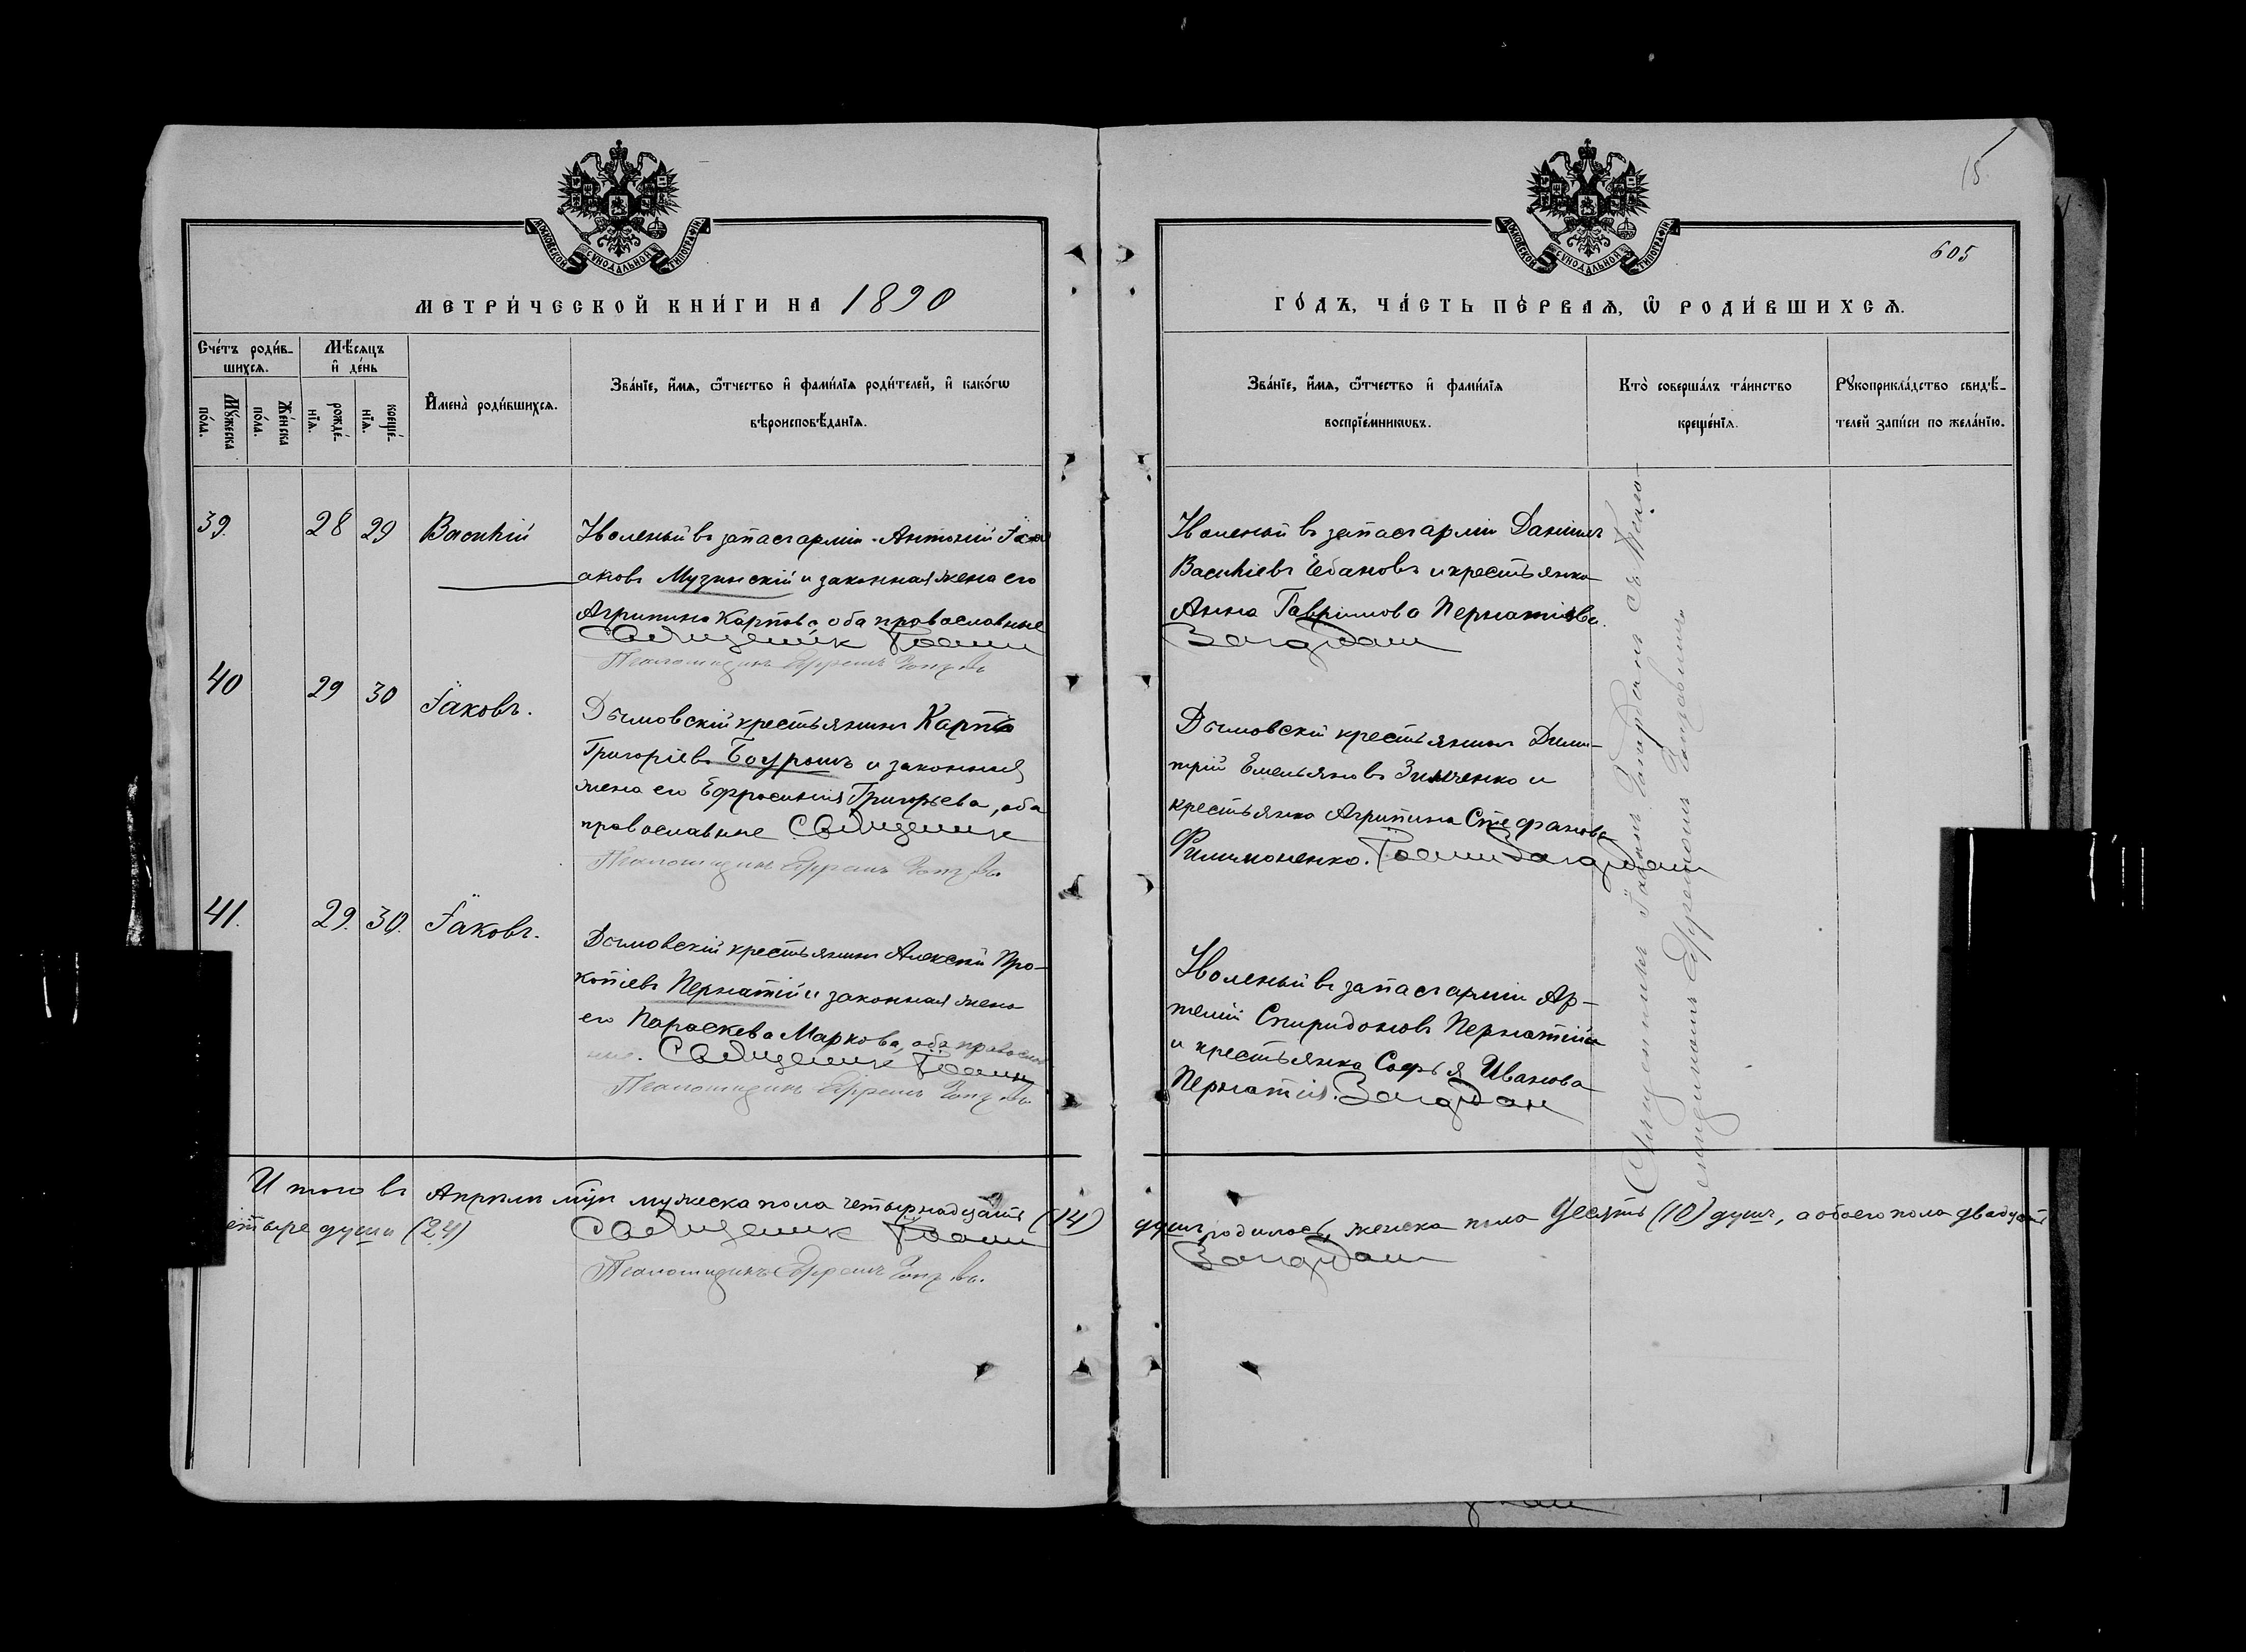 15
605
МОСКОВСКОЙ СУНОДАЛЬНОЙ ТИПОГРАФІИ
МОСКОВСКОЙ СУНОДАЛЬНОЙ ТИПОГРАФІИ
МЕТРИ́ЧЕСКОЙ КНИ́ГИ НА 1890
ГО́ДЪ, ЧА́СТЬ ПЕ́РВАЯ, Ѽ РОДИ́ВШИХСЯ.
Сче́тъ роди́в-
шихся.
Мѣ́сяцъ
и҆ де́нь
Му́жеска
по́ла.
Же́нска
по́ла.
рожде́-
нїя.
креще́-
нїя.
И҆мена̀ роди́вшихся.
Зва́нїе, и҆́мя, ѻ҆́тчество и҆ фами́лїя роди́телей, и҆ како́гѡ
вѣроисповѣ́данїя.
Зва́нїе, и҆́мя, ѻ҆́тчество и҆ фами́лїя
воспрїе́мникѡвъ.
Кто̀ соверша́лъ та́инство
креще́нїя.
Рꙋкоприкла́дство свидѣ́-
телей за́писи по жела́нїю.
39. 28 29 Василій
Уволеный въ запасъ арміи Антоній Іа-
ковъ Музынскій и законная жена его
Агрипина Карпова, оба православные
Священник Іоанн
Псаломщикъ Ефремъ
Уволеный въ запасъ арміи Даніилъ
Василіевъ Чебановъ и крестьянка
Анна Гавріилова Пернатіева.
40 29 30 Іаковъ.
Дымовскій крестьянинъ Карпъ
Григоріевъ Боурошъ и законная
жена его Ефросинія Григорьева, оба
православные Священник
Псаломщикъ Ефремъ
Дымовскій крестьянинъ Дими-
трій Емельяновъ Зинченко и
крестьянка Агрипина Стефанова
Филимоненко. Іоанн
41. 29. 30. Іаковъ.
Дымовскій крестьянинъ Алексѣй Про-
копіевъ Пернатій и законная жена
его Параскева Маркова, оба православ-
ные. Священник Іоанн
Псаломщикъ Ефремъ
Уволеный въ запасъ арміи Ар-
темій Спиридоновъ Пернатій
и крестьянка Софья Иванова
Пернатія.
Священникъ Іоаннъ съ Псало-
мщикомъ Ефремомъ
Итого въ Апрѣлѣ м-цѣ мужеска пола четырнадцать (14) душъ родилось, женска пола десять (10) душъ, а обоего пола двадцать
четыре души (24) Священник Іоанн
Псаломщикъ Ефремъ